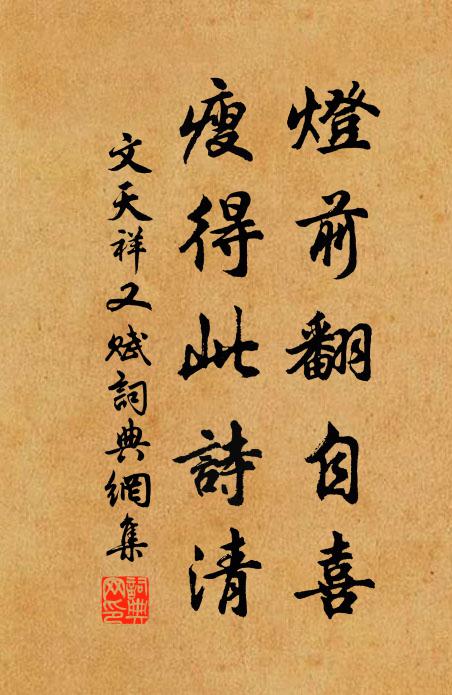 燈前翻自喜
瘦得此詩清
文天祥又賦詞典網集
詞典網印